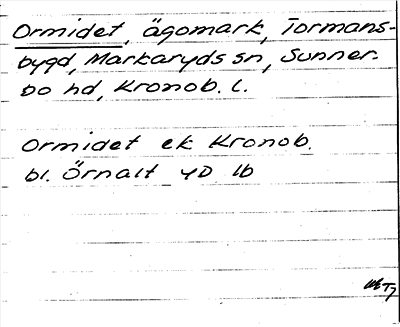 Ormidet, ägomark, Tormans-
bygd, Markaryds sn, Sunner-
bo hd, Kronob. l.
Ormidet ek Kronob.
bl. Örnalt 4D 1b